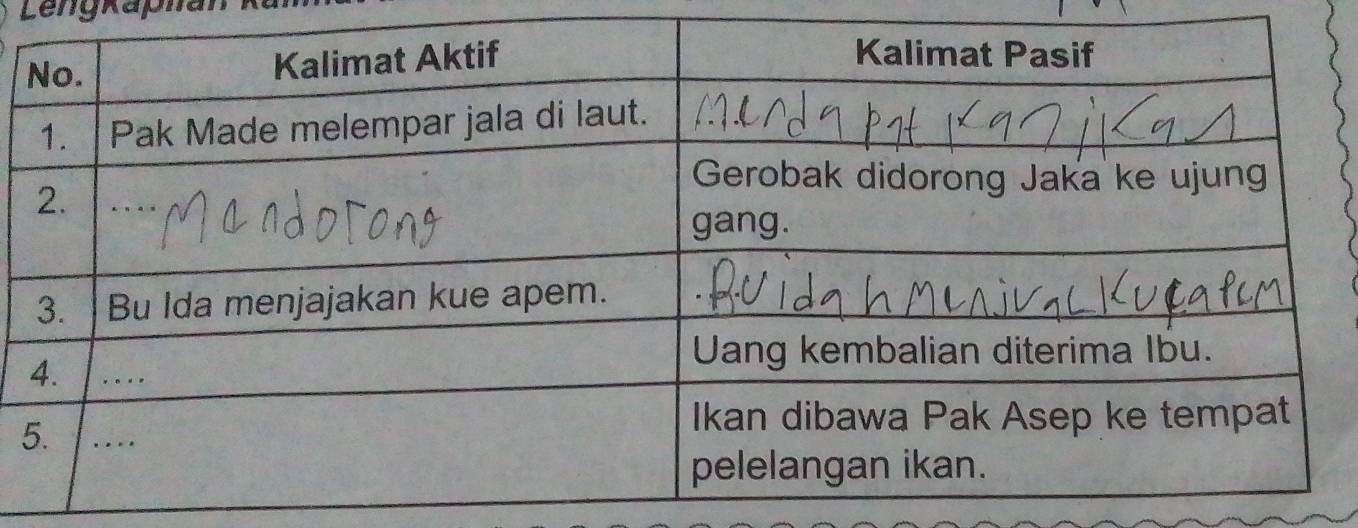 Lengkapilah
No. Kalimat Aktif Kalimat Pasif
1. Pak Made melempar jala di laut. Mendapat kan ikan
2. .... Mendorong Gerobak didorong Jaka ke ujung
gang.
3. Bu Ida menjajakan kue apem.
4. .... Uang kembalian diterima Ibu.
5. .... Ikan dibawa Pak Asep ke tempat
pelelangan ikan.